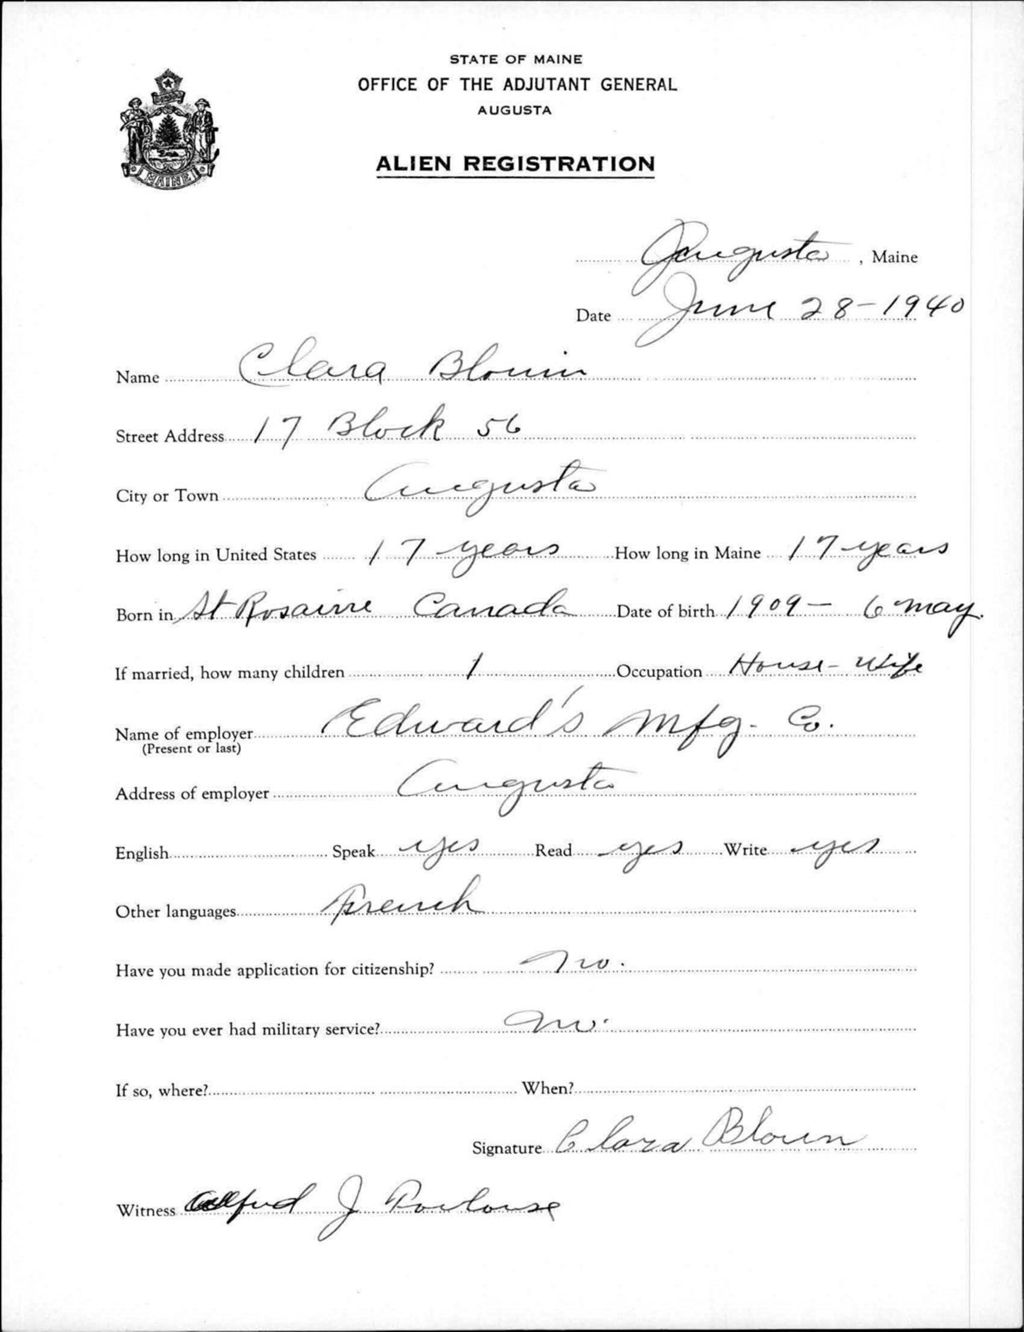 STATE OF MAINE
OFFICE OF THE ADJUTANT GENERAL
AUGUSTA
ALIEN REGISTRATION
MAINE
Augusta, Maine
Date June 28-1940
Name Clara Blouin
Street Address 17 Block 56
City or Town Augusta
How long in United States 17 years How long in Maine 17 years
Born in St Rosairre Canada Date of birth 1909- 6 may.
If married, how many children 1 Occupation House-Wife
Name of employer Edward's Mfg. Co.
(Present or last)
Address of employer Augusta
English Speak yes Read yes Write yes
Other languages French
Have you made application for citizenship? no.
Have you ever had military service? no.
If so, where? When?
Signature Clara Blouin
Witness Alfred J Toulouse